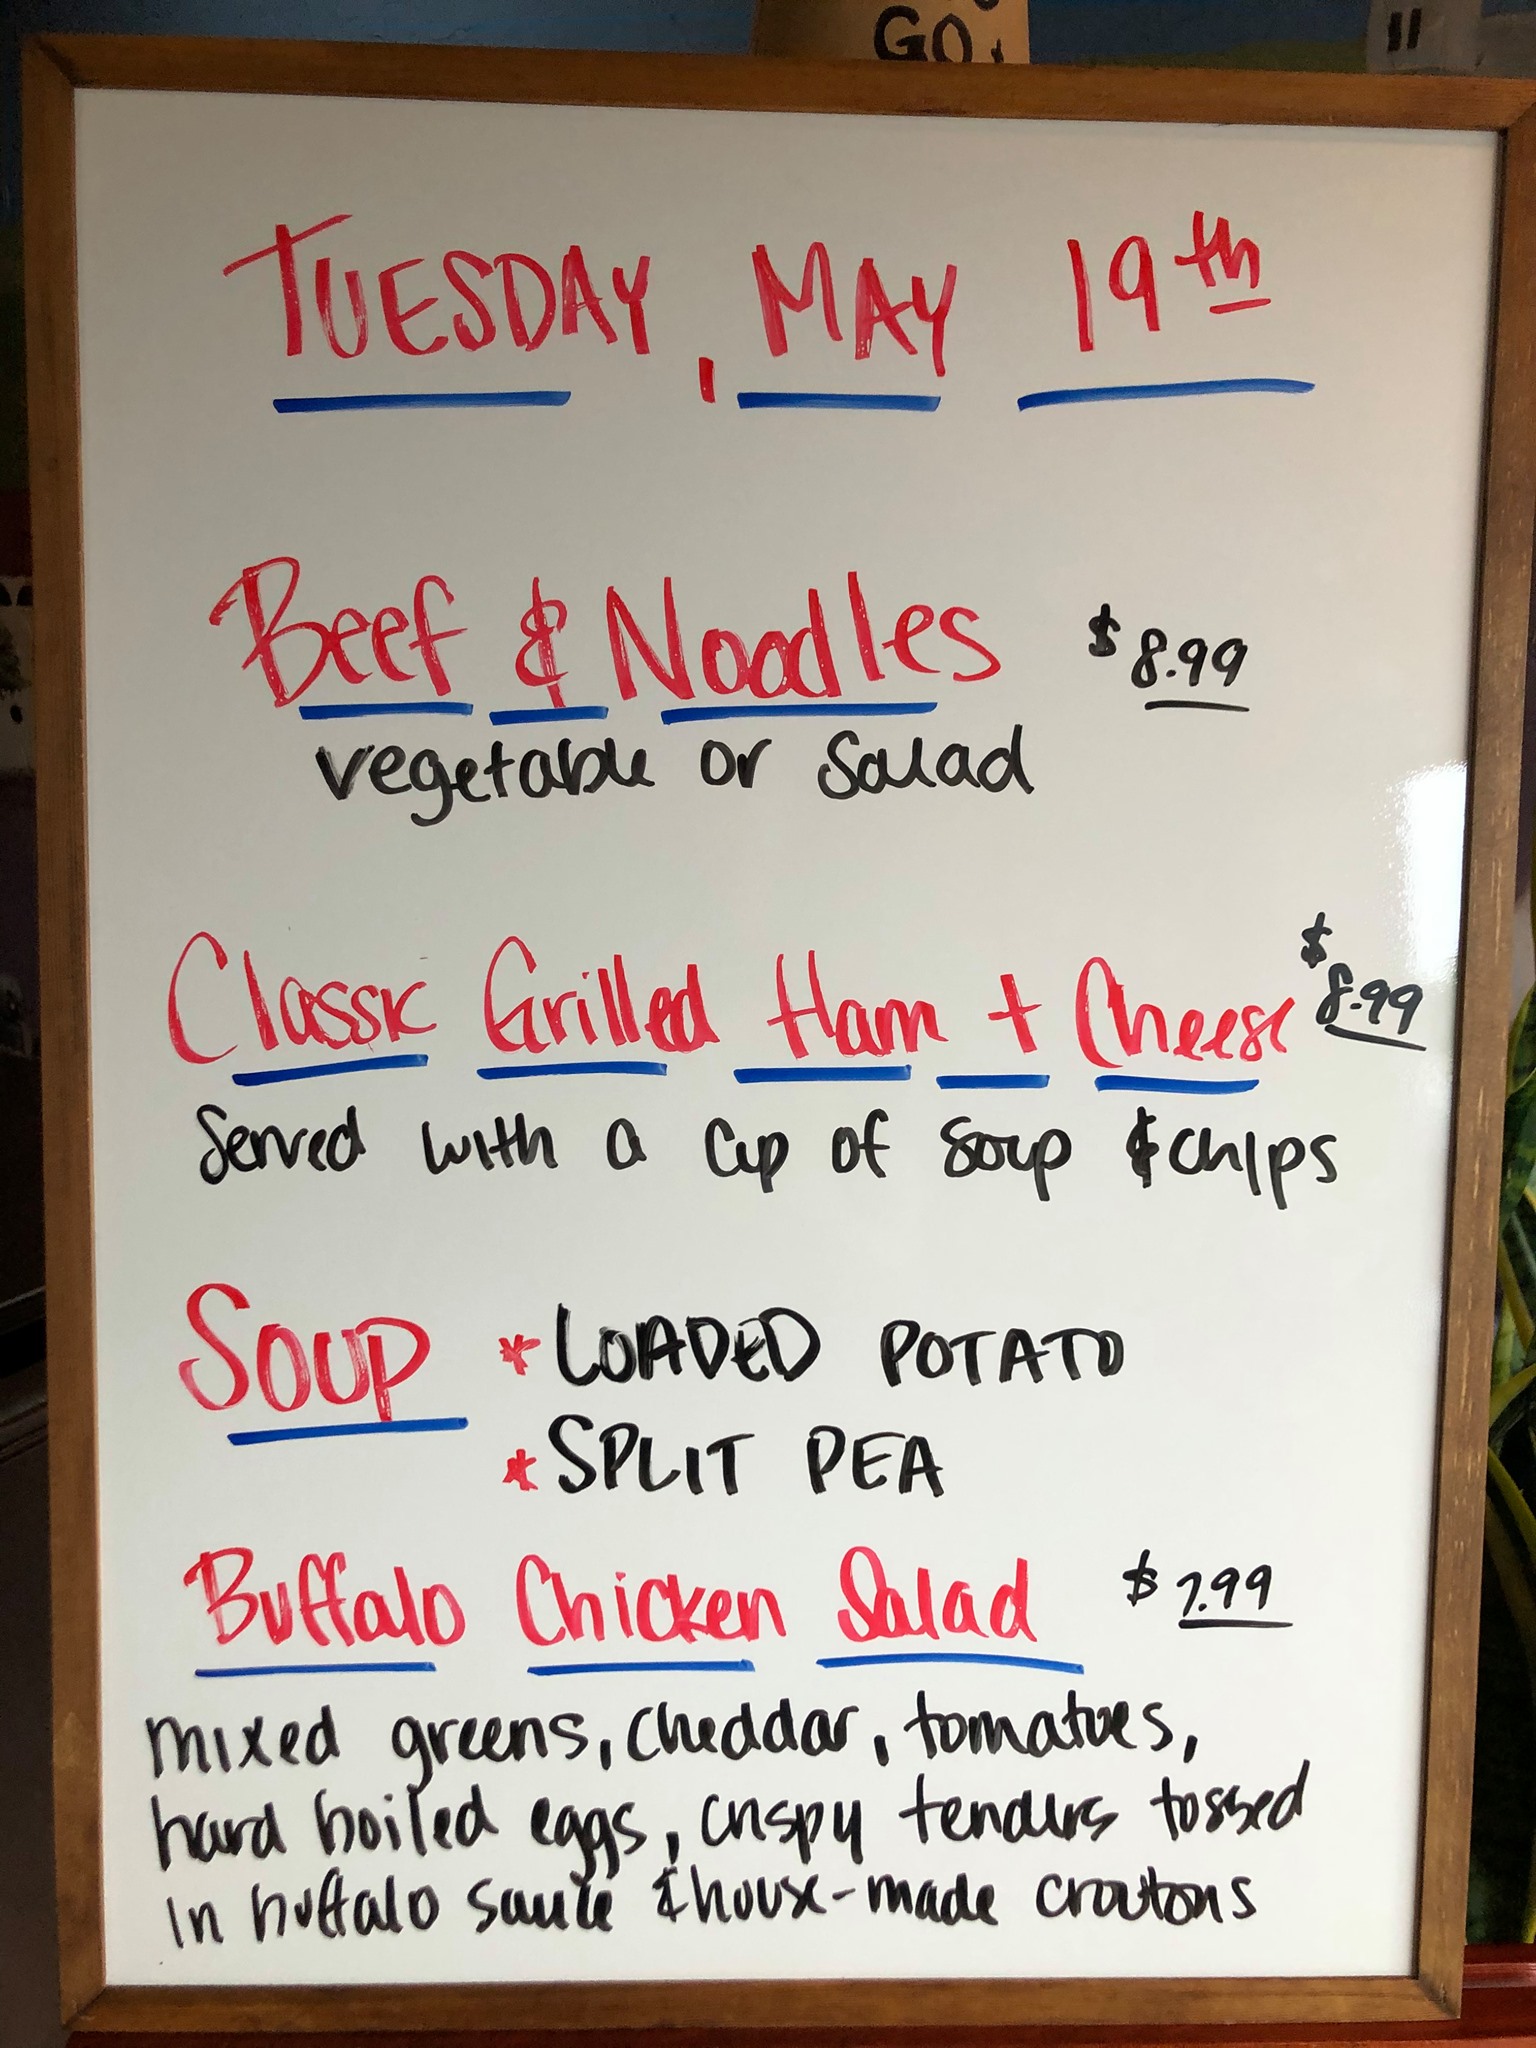 GO
TUESDAY, MAY 19th
Beef & Noodles $8.99
vegetable or salad
Classic Grilled Ham + Cheese $8.99
Served with a cup of soup & chips
SOUP * LOADED POTATO
* SPLIT PEA
Buffalo Chicken Salad $7.99
mixed greens, cheddar, tomatoes,
hard boiled eggs, crispy tenders tossed
in buffalo sauce & house-made croutons